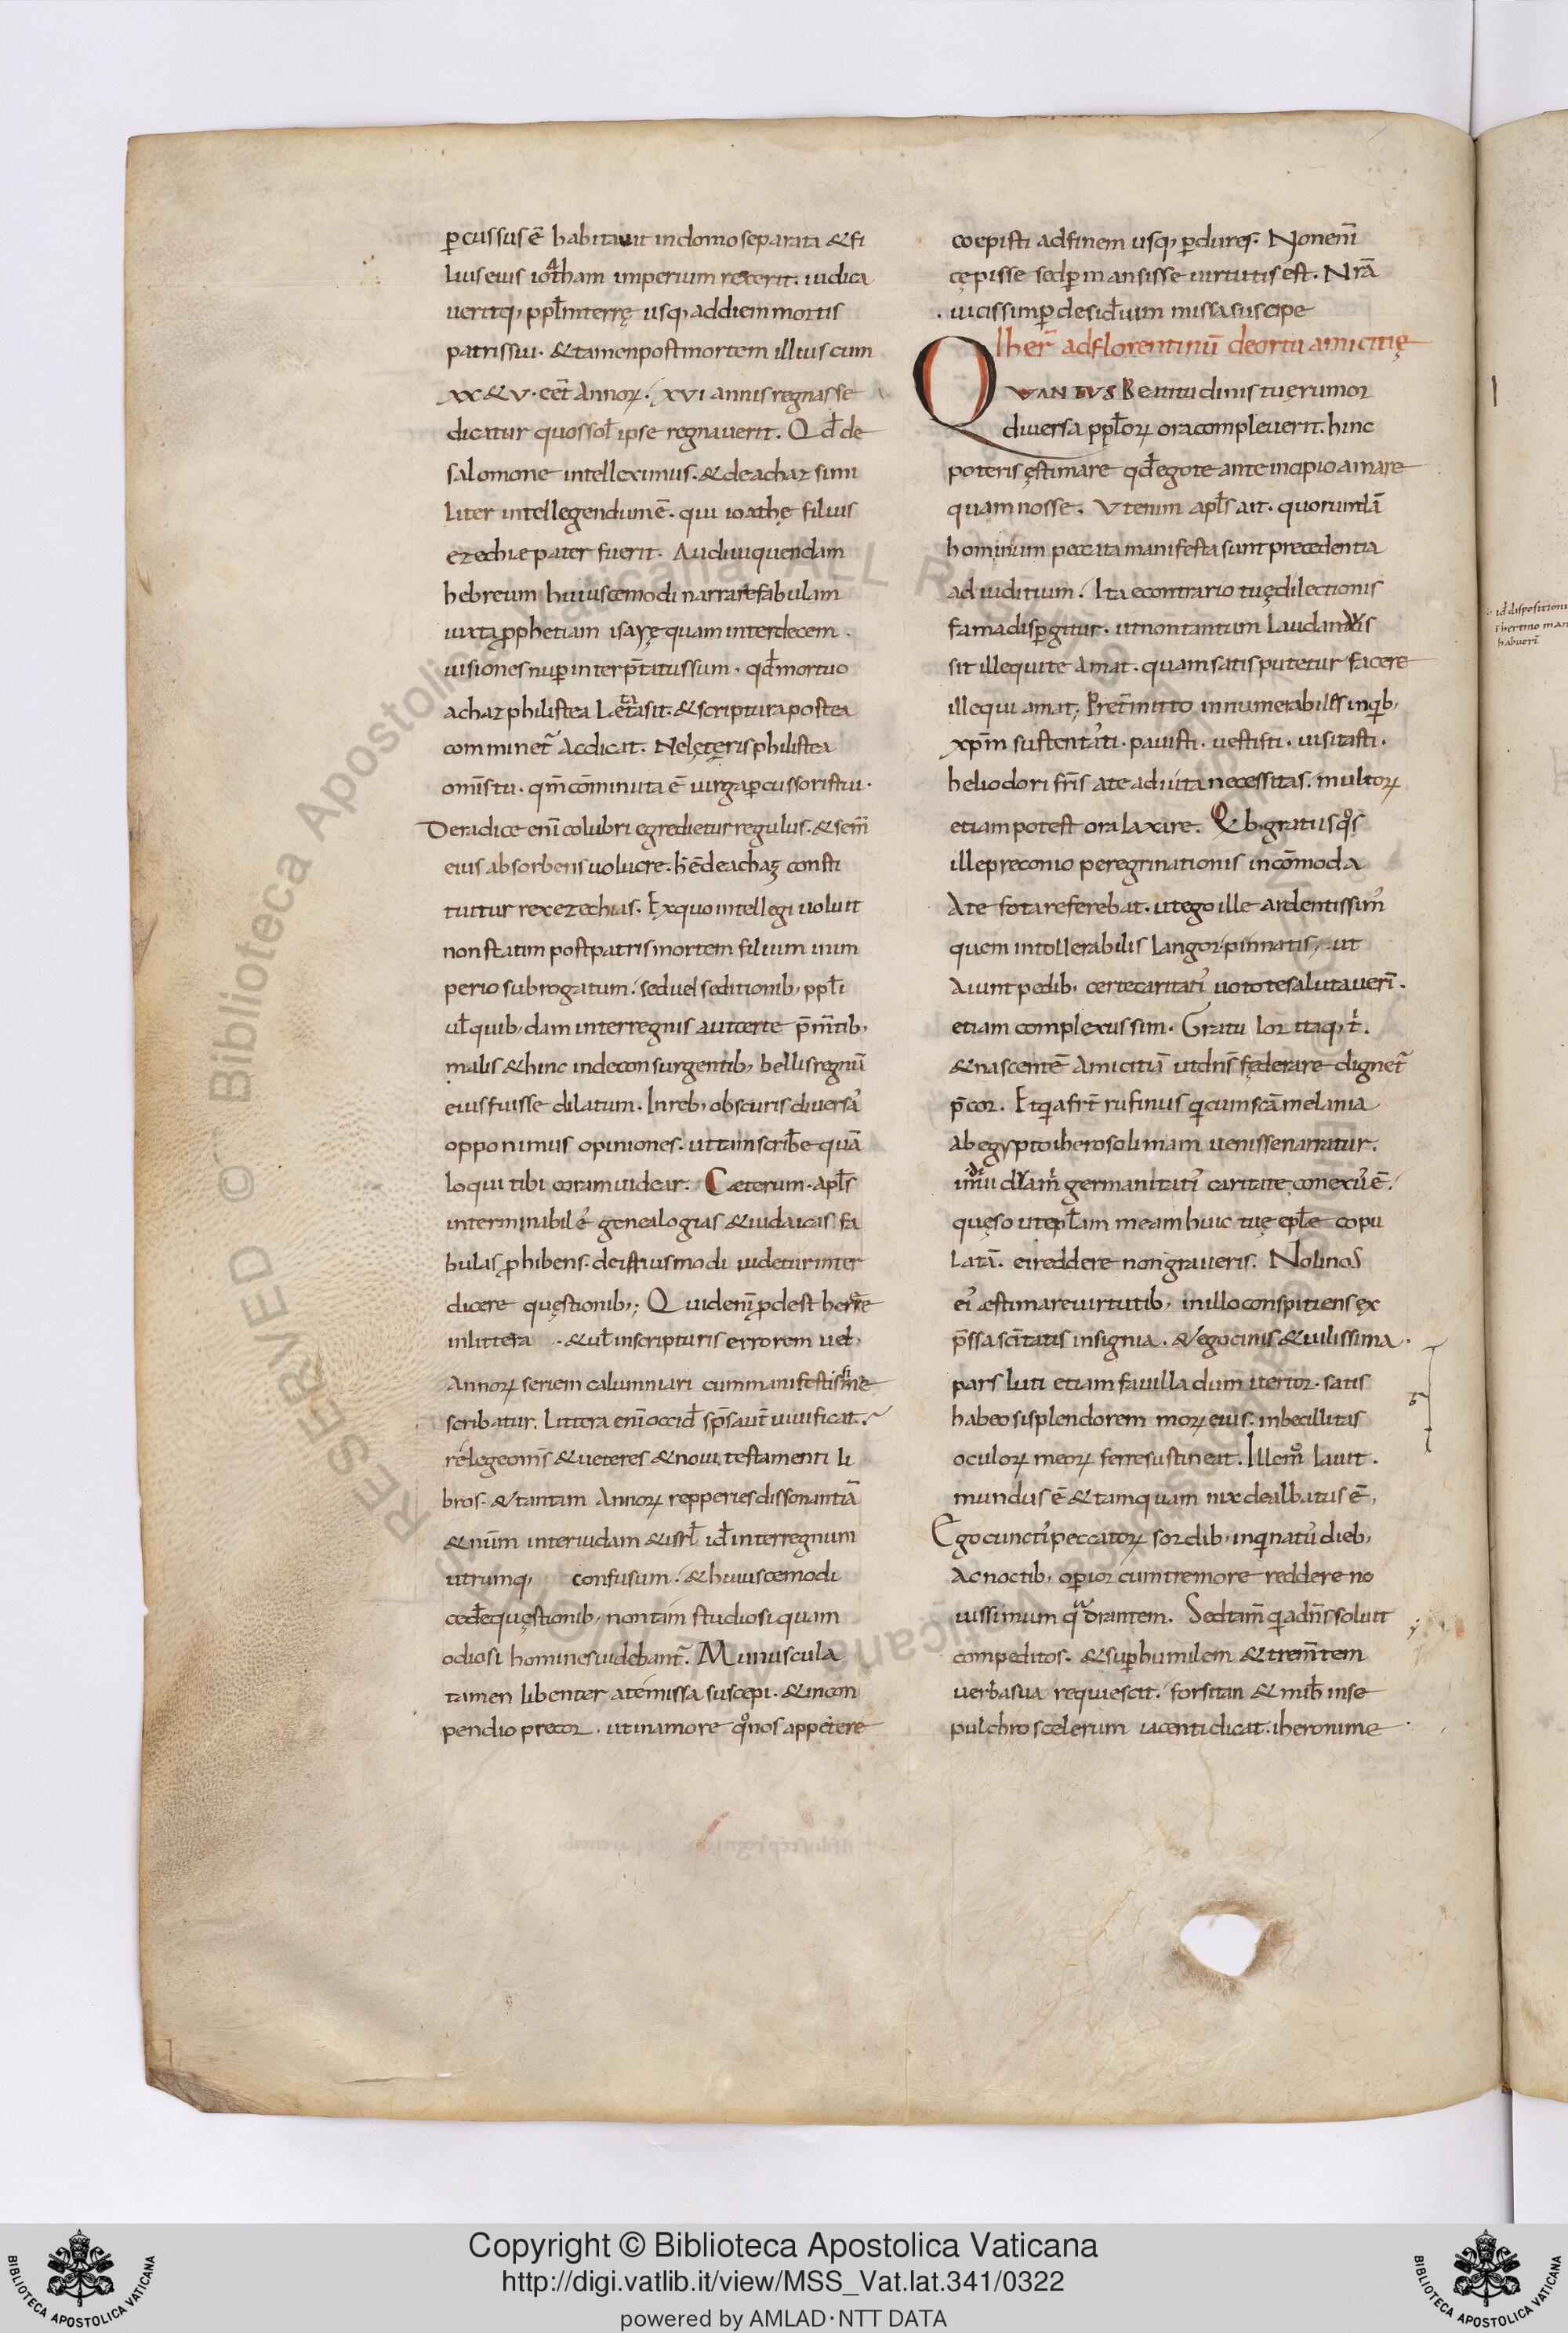 p̄cussus ē habitauit in domo separata & fi
lius eius ioatham imperium rexerit. iudica
ueritq; ppl̄m terrę usq; ad diem mortis
patris sui. & tamen post mortem illius cum
xx & v. eēt annoꝝ. xvi annis regnasse
dicatur quos sol̄ ipse regnauerit. Qđ de
salomone intelleximus. & de achaz simi
liter intellegendum ē. qui ioathę filius
ezechiæ pater fuerit. Audiui quendam
hebreum huiuscemodi narrare fabulam
iuxta ꝓphetiam isayę quam inter decem
uisiones nuꝑ interp̄tatus sum. qđ mortuo
achaz philistea lætata sit. & scriptura postea
comminet̄ ac dicat. Ne lęteris philistea
om̄s tu. qm̄ cōminuta ē uirga ꝑcussoris tui.
De radice eni̅ colubri egredietur regulus. & sem̄
eius absorbens uolucre. h̄ ē de achaz consti
tuitur rex ezechias. Ex quo intellegi uoluit
non statim post patris mortem filium in im
perio subrogatum. sed uel seditionib; ppl̄i
ul̄ quib;dam interregnis aut certe p̄m̄tib;
malis & hinc inde consurgentib; bellis regnū
eius fuisse dilatum. In reb; obscuris diuersas
opponimus opiniones. ut tam scrib̄e quā
loqui tibi coram uidear. Cæterum apl̄s
interminabiles genealogias & iudaicas fa
bulas ꝓhibens. de istiusmodi uidetur inter
dicere quęstionib;; Quid eni̅ ꝓdest herere
in littera & ul̄ in scripturis errorem uel
annoꝝ seriem calumniari cum manifestissime
scribatur. Littera eni̅ occid̄ sp̄s aut̄ uiuificat.
relege om̄s & ueteres & noui testamenti li
bros. & tantam annoꝝ repperies dissonantiā
& num̄ inter iudam & isrl̄ id̄ inter regnum
utrumq; confusum. & huiuscemodi
ced̄e quęstionib; non tam̄ studiosi quam
odiosi homines uidebant̄. Munuscula
tamen libenter a te missa suscepi. & incon
pendio precor. ut in amore qͦ nos appetere
coepisti ad finem usq; ꝑdures. Non eni̅
cępisse sed ꝑmansisse uirtutis est. Nr̄a
uicissim ꝑ desid̄ium missa suscipe
Iher̄ ad florentinū de ortu amicitię
QVANTVS Beatitudinis tuę rumor
diuersa ppl̄oꝝ ora compleuerit. hinc
poteris ęstimare qđ ego te ante incipio amare
quam nosse. Vt enim apl̄s ait. quorundā
hominum peccata manifesta sunt precedentia
ad iuditium. Ita e contrario tuę dilectionis
fama dispergitur. ut non tantum laudandus
sit ille qui te amat. quam satis putetur facere
ille qui amat; Pretm̄itto innumerabiles in qb;
xp̄m sustentasti. pauisti. uestisti. uisitasti.
heliodori fr̄is a te adiuta necessitas. multoꝝ
etiam potest ora laxare. Qb; gratus qͦs
ille preconio peregrinationis incōmoda
a te fota referebat. ut ego ille ardentissim᾿
quem intollerabilis langor pinnatis, ut
aiunt pedib; certe caritatis uoto te salutauerī.
etiam complexus sim. Gratulor itaq; t̄.
& nascentē amicitiā ut dn̄s fęderare dignet̄
p̄cor. Et qa fr̄t rufinus q cum sc̄a melania
ab egypto iherosolimam uenisse narratur.
indiuidua m̄ germanitatis caritate conexus ē.
quęso ut epl̄am meam huic tuę epl̄e copu
latā. ei reddere non graueris. Noli nos
eius æstimare uirtutib; in illo conspitiens ex
p̄ssa sc̄itatis insignia. & ego cinis & uilissima
pars luti etiam fauilla dum uertor. satis
habeo si splendorem moꝝ eius. inbecillitas
oculoꝝ meoꝝ ferre sustineat. Ille mͦ lauit.
mundus ē & tamquam nix dealbatus ē,
Ego cunctis peccatoꝝ sordib; inqnatus dieb;
ac noctib; operior cum tremore reddere no
uissimum quadrantem. Sed tam̄ q a dn̄s soluit
compeditos. & suꝑ humilem & trem̄tem
uerba sua requiescit. forsitan & mih̄ in se
pulchro scelerum iacenti dicat. iheronime
id dispositioni
Copyright © Biblioteca Apostolica Vaticana
http://digi.vatlib.it/view/MSS_Vat.lat.341/0322
powered by AMLAD·NTT DATA
BIBLIOTECA APOSTOLICA VATICANA
BIBLIOTECA APOSTOLICA VATICANA